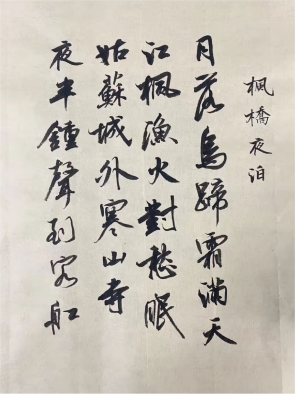 楓橋夜泊
月落烏蹄霜滿天
江楓漁火對愁眠
姑蘇城外寒山寺
夜半鍾聲到客船